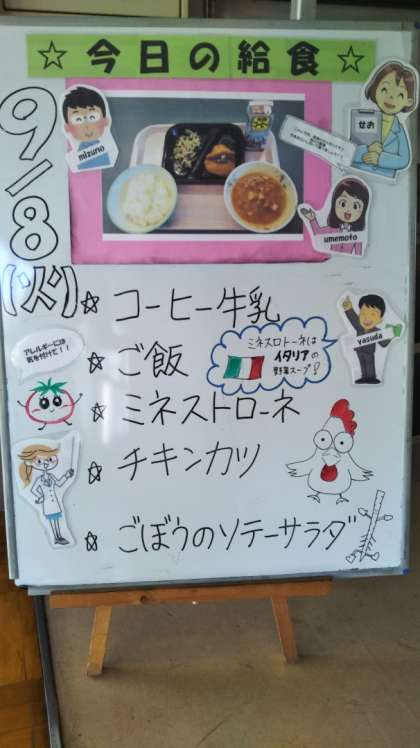 ☆今日の給食☆
9/8
(火)
mizuno
せお
umemoto
yasuda
☆ コーヒー牛乳
アレルギーには
気を付けて！！
☆ ご飯
ミネスロトーネは
イタリアの
野菜スープ？
☆ ミネストローネ
☆ チキンカツ
☆ ごぼうのソテーサラダ